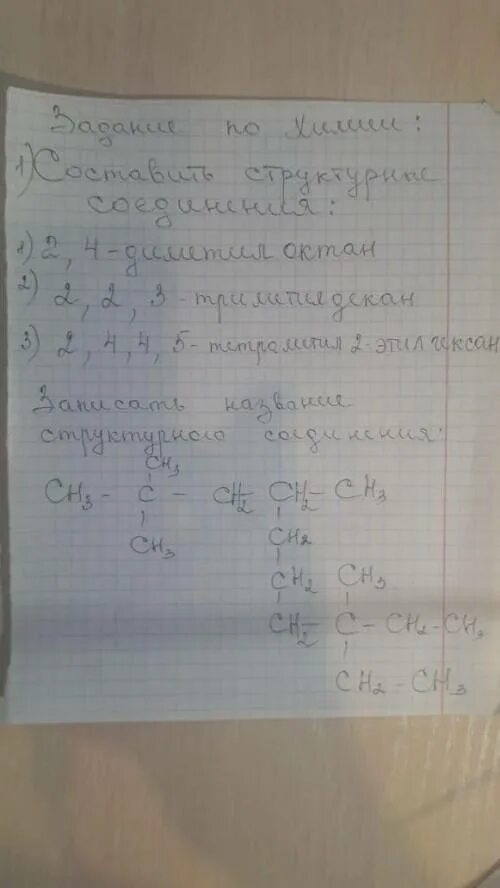 Задание по химии:
1) Составить структурные
соединения:
1) 2, 4-диметил октан
2) 2, 2, 3-триметилдекан
3) 2, 4, 4, 5-тетраметил 2-этил гексан
Записать название
структурного соединения:
CH3
CH3 - C - CH2 - CH2 - CH3
CH3 CH2
CH2 CH3
CH2 - C - CH2 - CH3
CH2 - CH3